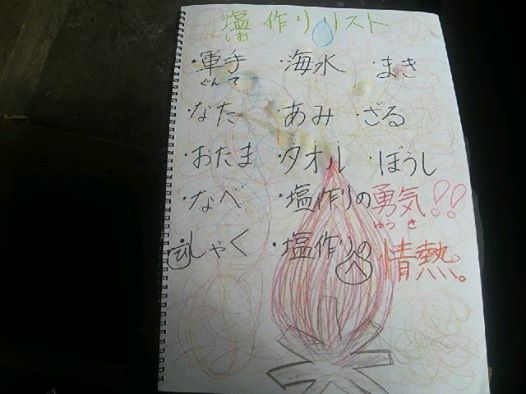 塩作りリスト
しお
・軍手 ・海水 ・まき
ぐんて
・なた ・あみ ・ざる
・おたま ・タオル ・ぼうし
・なべ ・塩作りの勇気!!
ゆうき
・ひしゃく ・塩作りの情熱。